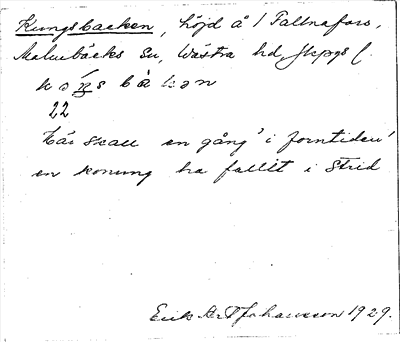 Kungsbacken, höjd å 1 Fallnafors,
Malmbäcks sn, Västra hd, Jkpgs l.
22
Här skall en gång "i forntiden"
en konung ha fallit i strid
Erik Art Johansson 1929.